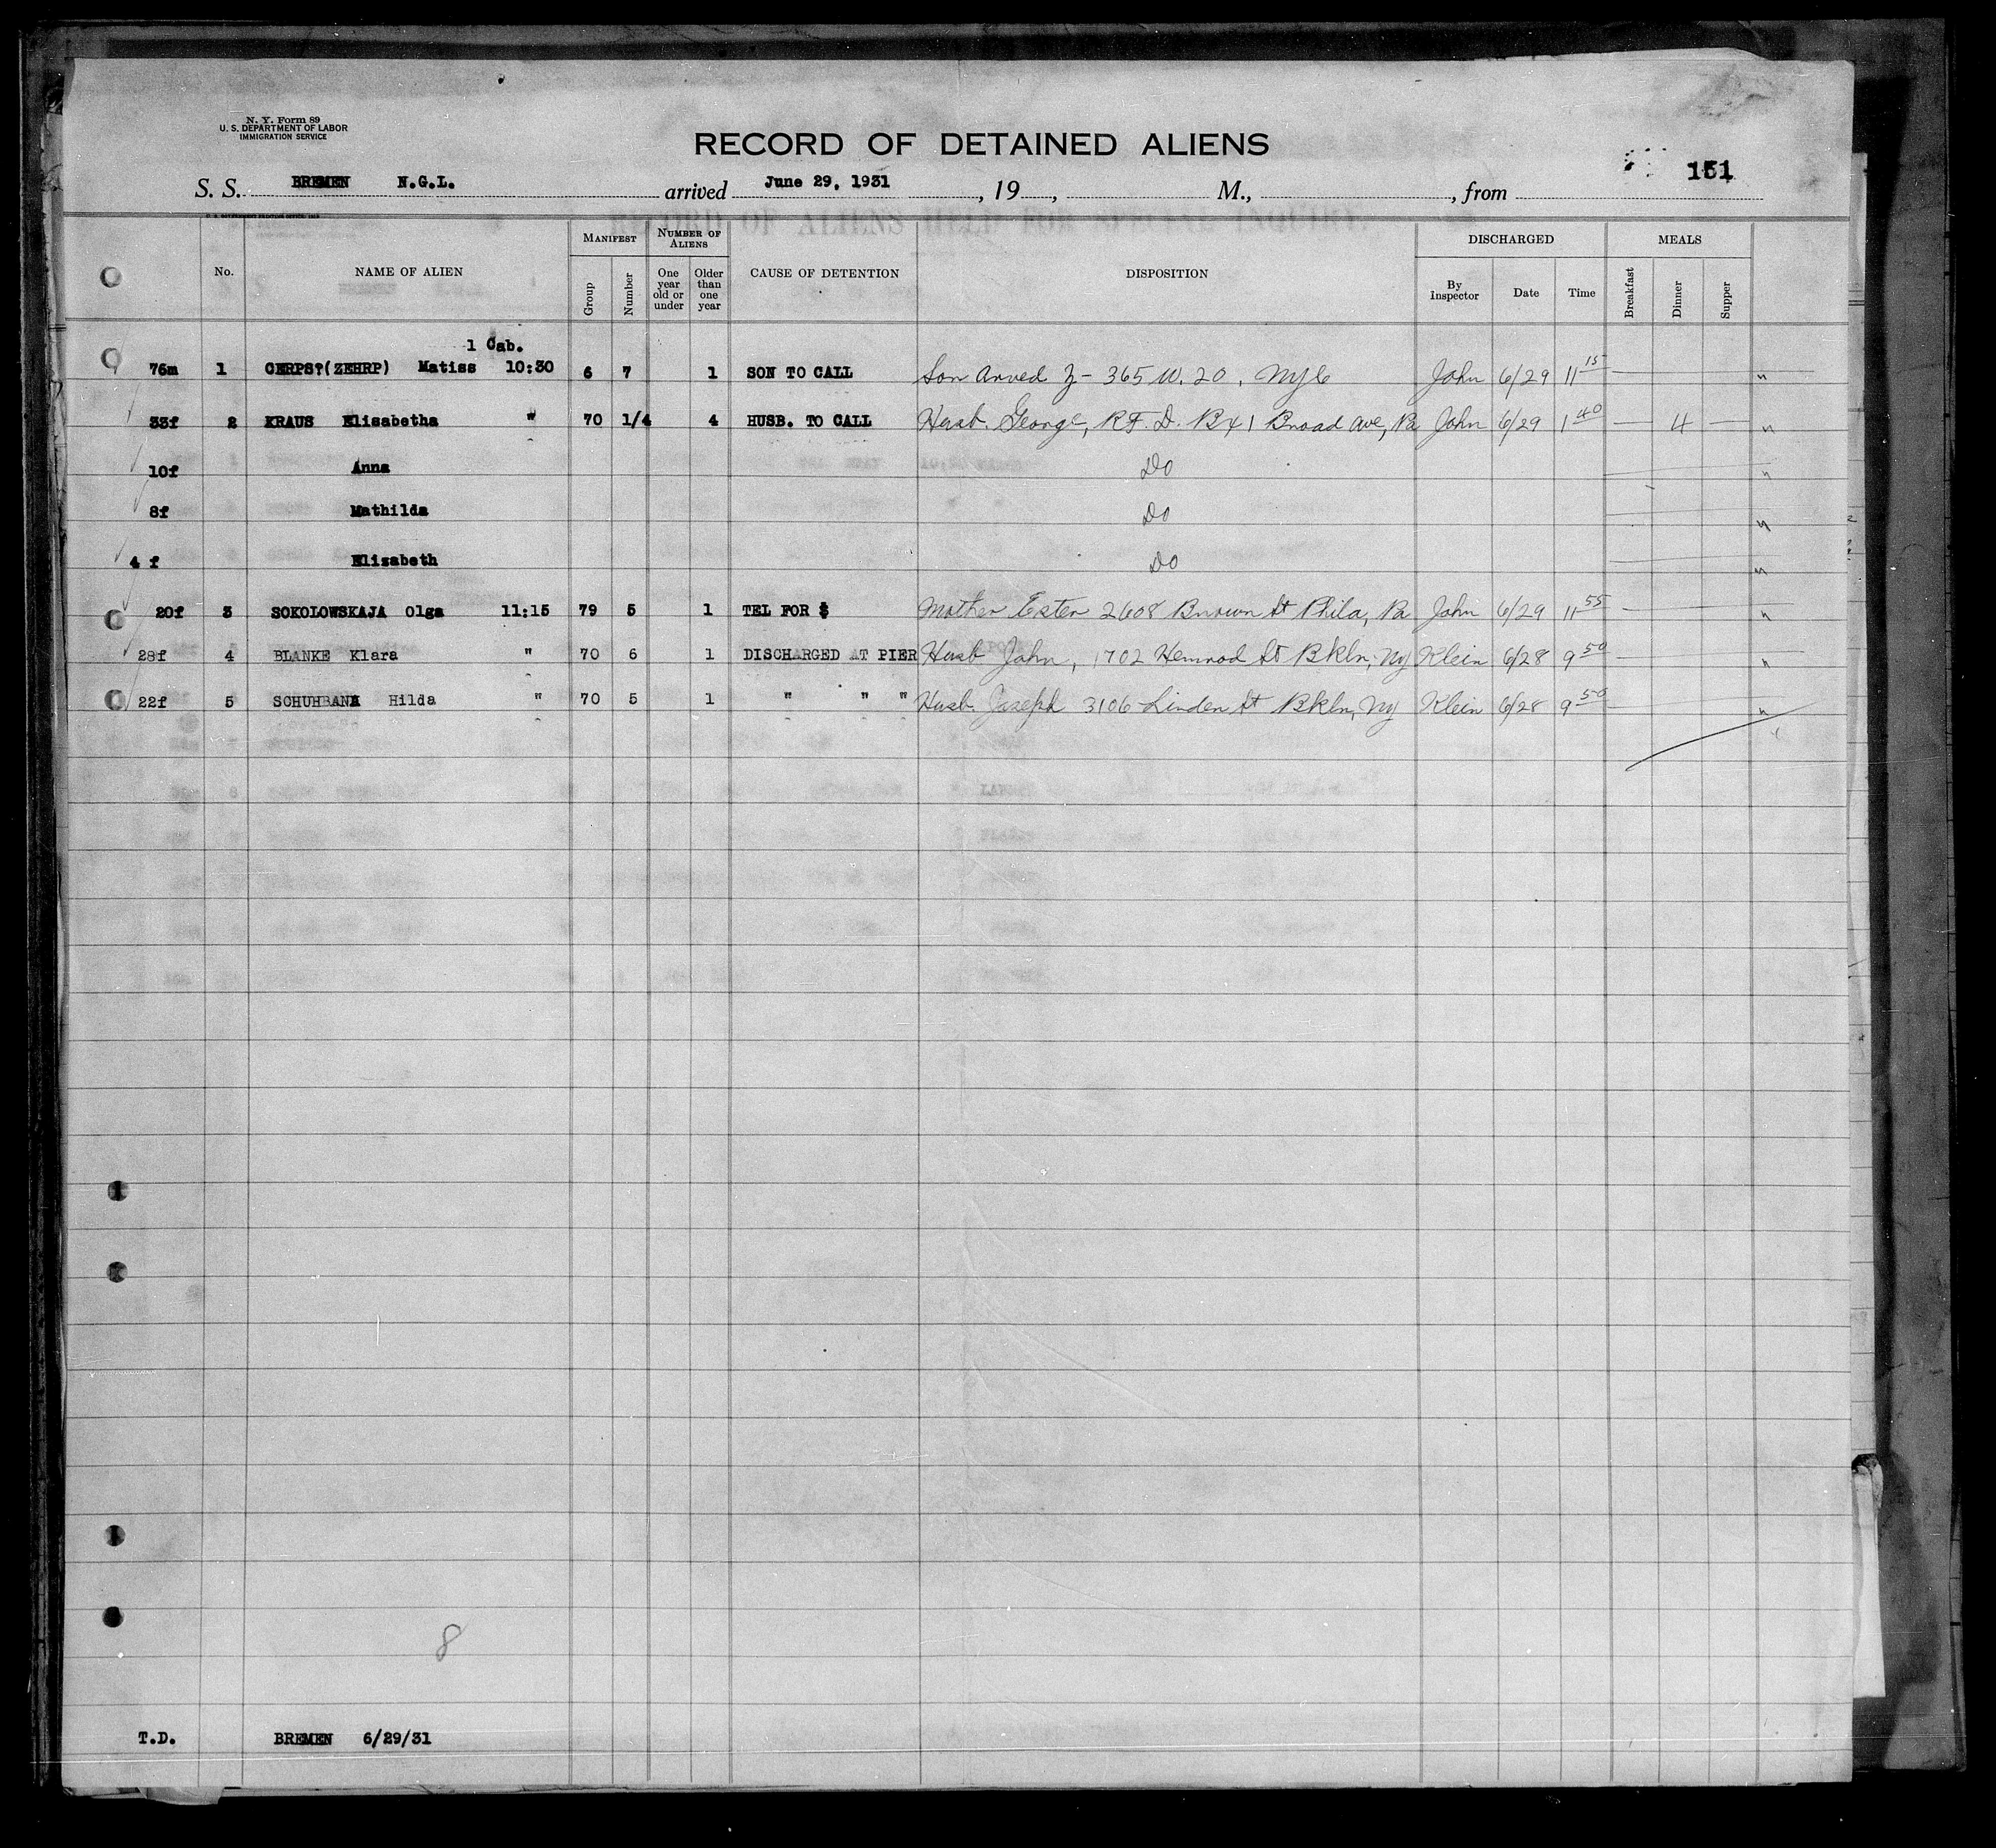 N. Y. Form 89
U. S. DEPARTMENT OF LABOR
IMMIGRATION SERVICE
RECORD OF DETAINED ALIENS
151
S. S. BREMEN N.G.L. arrived June 29, 1931, 19 , M., , from
No. NAME OF ALIEN MANIFEST Group Number NUMBER OF ALIENS One year old or under Older than one year CAUSE OF DETENTION DISPOSITION DISCHARGED By Inspector Date Time MEALS Breakfast Dinner Supper
1 Cab.
76m 1 CERPS?(ZEHRP) Matiss 10:30 6 7 1 SON TO CALL Son Arved Z - 365 W. 20, NYC John 6/29 11 15 — "
33f 2 KRAUS Elisabetha " 70 1/4 4 HUSB. TO CALL Husb. George, R.F.D. Bx 1 Broad Ave, Pa John 6/29 1 40 — 4 — "
10f Anna Do "
8f Mathilda Do "
4 f Elisabeth Do "
20f 3 SOKOLOWSKAJA Olga 11:15 79 5 1 TEL FOR $ Mother Ester 2608 Brown St Phila, Pa John 6/29 11 55 — "
28f 4 BLANKE Klara " 70 6 1 DISCHARGED AT PIER Husb John, 1702 Himrod St Bkln, NY Klein 6/28 9 50 — "
22f 5 SCHUHBANK Hilda " 70 5 1 " " " Husb. Joseph 3106 Linden St Bkln, NY Klein 6/28 9 50 — "
8
T.D. BREMEN 6/29/31